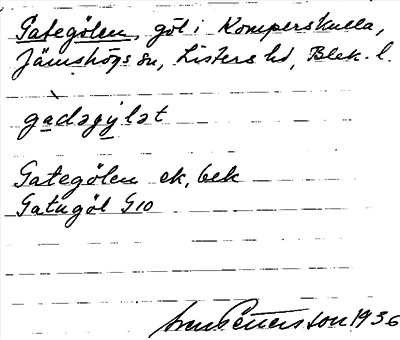 Gategölen, göl i Komperskulla,
Jämshögs sn, Listers hd, Blek. l.
gàdəgyl̥ət
Gategölen ek, bek
Gatugöl G10
Pettersson 1936